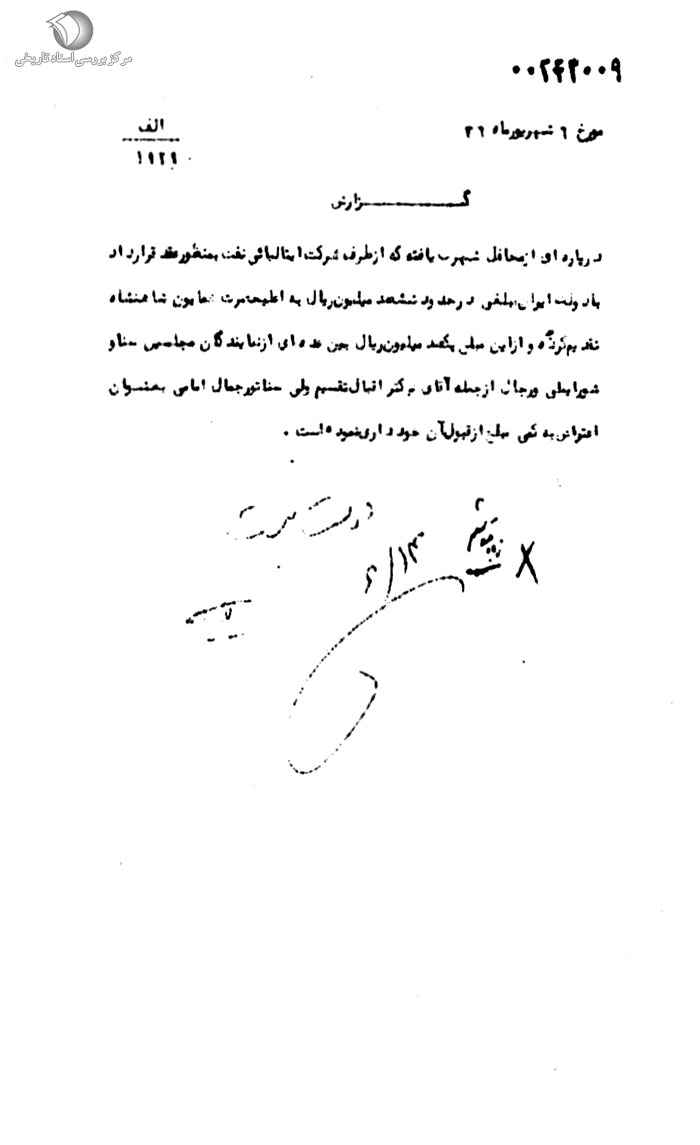 مرکز بررسی اسناد تاریخی
۰۰۲۴۲۰۰۹
مورخ ۶ شهریورماه ۳۶
الف
۱۹۲۹
گزارش
در پاره ای از محافل شهرت یافته که از طرف شرکت ایتالیائی نفت بمنظور عقد قرارداد
با دولت ایران مبلغی در حدود ششصد میلیون ریال به اعلیحضرت همایون شاهنشاه
تقدیم کرده و از این مبلغ یکصد میلیون ریال بین عده ای از نمایندگان مجلسین سنا و
شورایملی و رجال از جمله آقای دکتر اقبال تقسیم ولی سناتور جمال امامی بعنوان
اعتراض به کمی مبلغ از قبول آن خودداری نموده است .
درست نیست
۶/۱۳